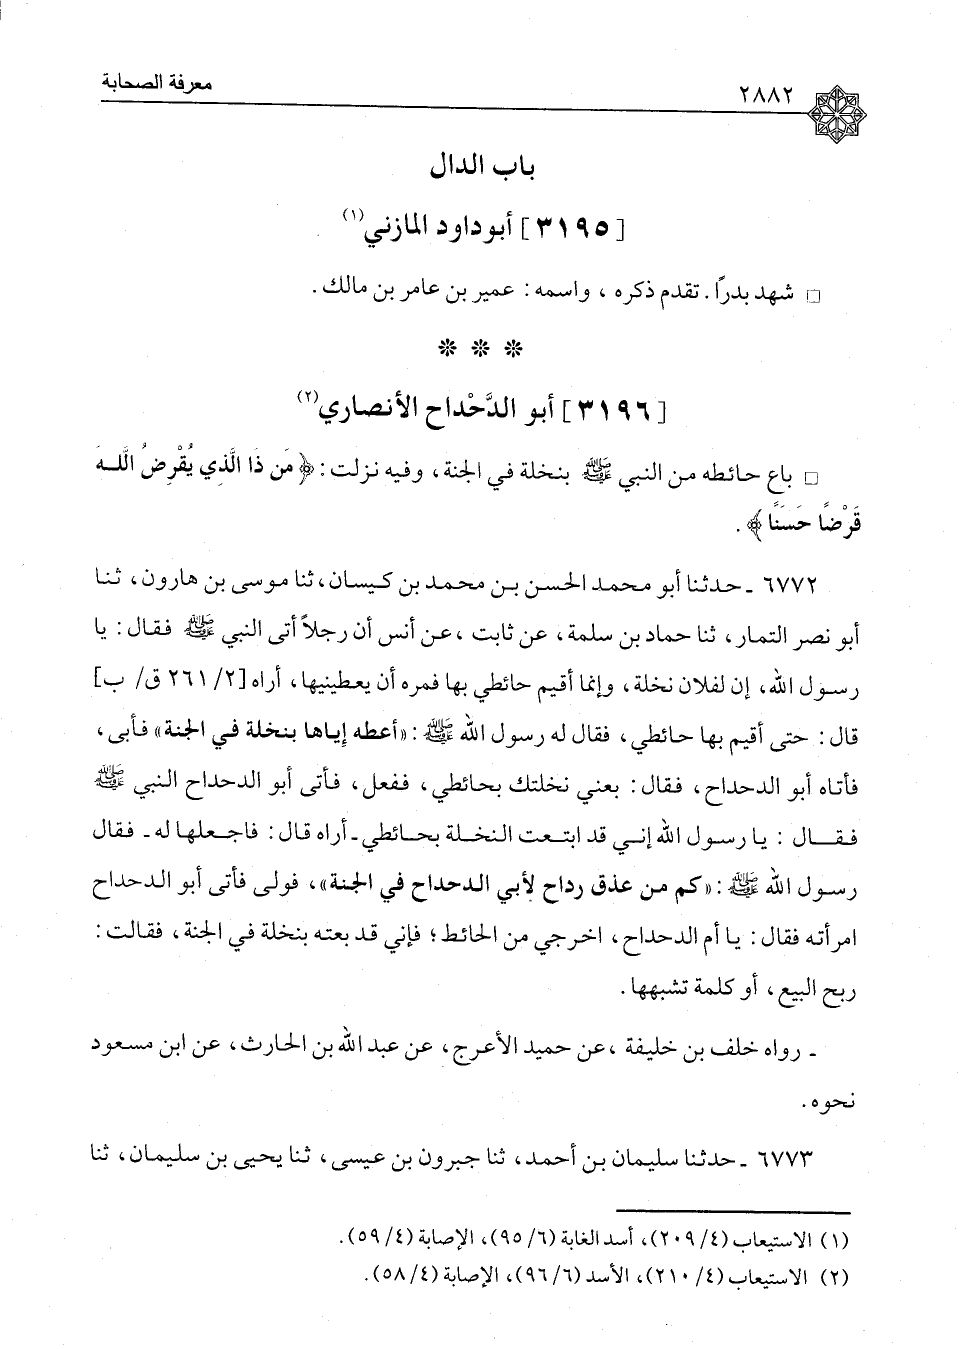 ٢٨٨٢ معرفة الصحابة
باب الدال
[٣١٩٥] أبو داود المازني(١)
□ شهد بدرًا. تقدم ذكره، واسمه: عمير بن عامر بن مالك.
❊ ❊ ❊
[٣١٩٦] أبو الدَّحْداح الأنصاري(٢)
□ باع حائطه من النبي ﷺ بنخلة في الجنة، وفيه نزلت: ﴿مَن ذَا الَّذِي يُقْرِضُ اللَّهَ
قَرْضًا حَسَنًا﴾.
٦٧٧٢ ـ حدثنا أبو محمد الحسن بن محمد بن كيسان، ثنا موسى بن هارون، ثنا
أبو نصر التمار، ثنا حماد بن سلمة، عن ثابت، عن أنس أن رجلاً أتى النبي ﷺ فقال: يا
رسول الله، إن لفلان نخلة، وإنما أقيم حائطي بها فمره أن يعطينيها، أراه [٢/ ٢٦١ ق/ ب]
قال: حتى أقيم بها حائطي، فقال له رسول الله ﷺ: «أعطه إياها بنخلة في الجنة» فأبى،
فأتاه أبو الدحداح، فقال: بعني نخلتك بحائطي، ففعل، فأتى أبو الدحداح النبي ﷺ
فقال: يا رسول الله إني قد ابتعت النخلة بحائطي ـ أراه قال: فاجعلها له ـ فقال
رسول الله ﷺ: «كم من عذق رداح لأبي الدحداح في الجنة»، فولى فأتى أبو الدحداح
امرأته فقال: يا أم الدحداح، اخرجي من الحائط؛ فإني قد بعته بنخلة في الجنة، فقالت:
ربح البيع، أو كلمة تشبهها.
ـ رواه خلف بن خليفة، عن حميد الأعرج، عن عبد الله بن الحارث، عن ابن مسعود
نحوه.
٦٧٧٣ ـ حدثنا سليمان بن أحمد، ثنا جبرون بن عيسى، ثنا يحيى بن سليمان، ثنا
(١) الاستيعاب (٤/ ٢٠٩)، أسد الغابة (٦/ ٩٥)، الإصابة (٤/ ٥٩).
(٢) الاستيعاب (٤/ ٢١٠)، الأسد (٦/ ٩٦)، الإصابة (٤/ ٥٨).